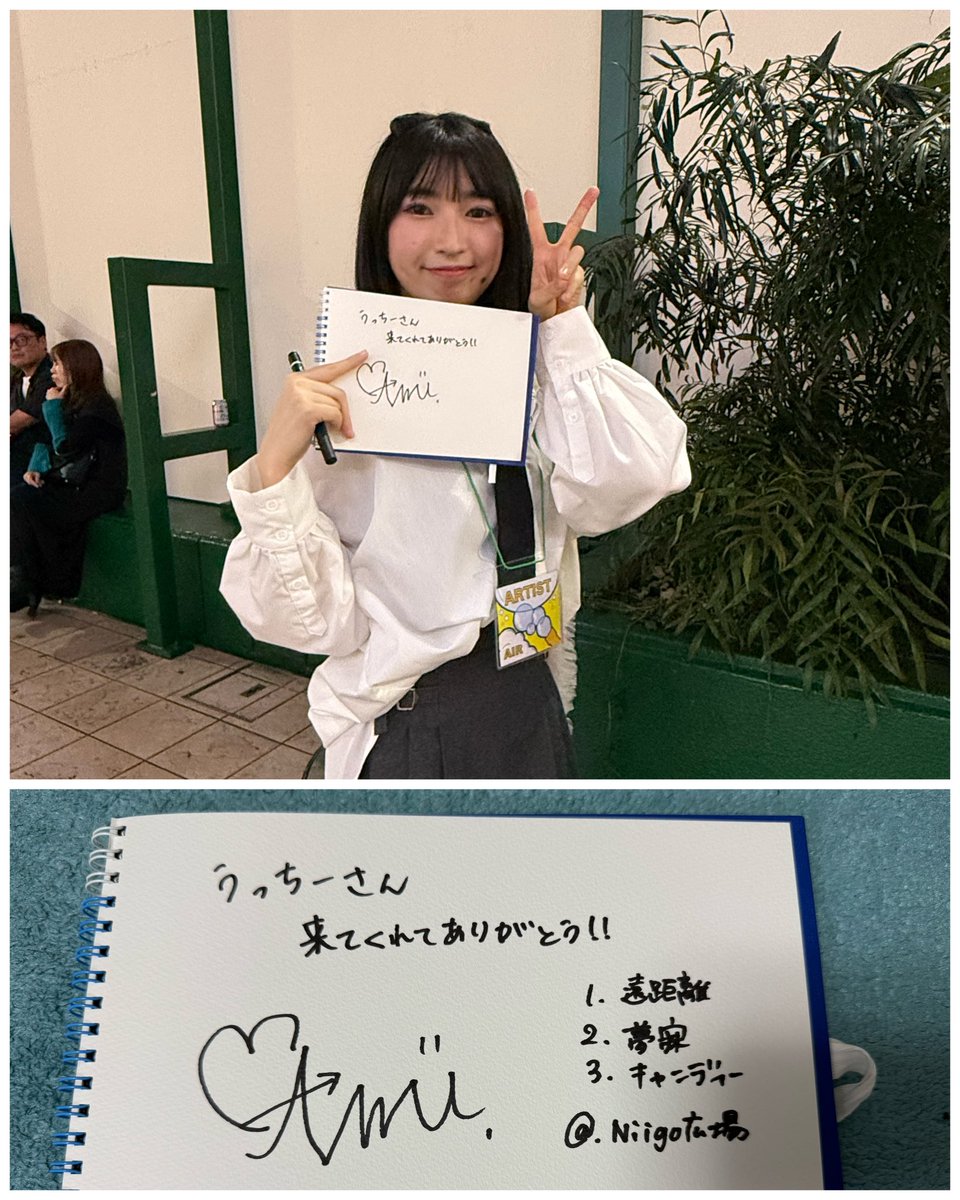 うっちーさん
来てくれてありがとう!!
Amü.
ARTIST
AIR
うっちーさん
来てくれてありがとう!!
Amü.
1. 遠距離
2. 夢寐
3. キャンディー
@. Niigo広場